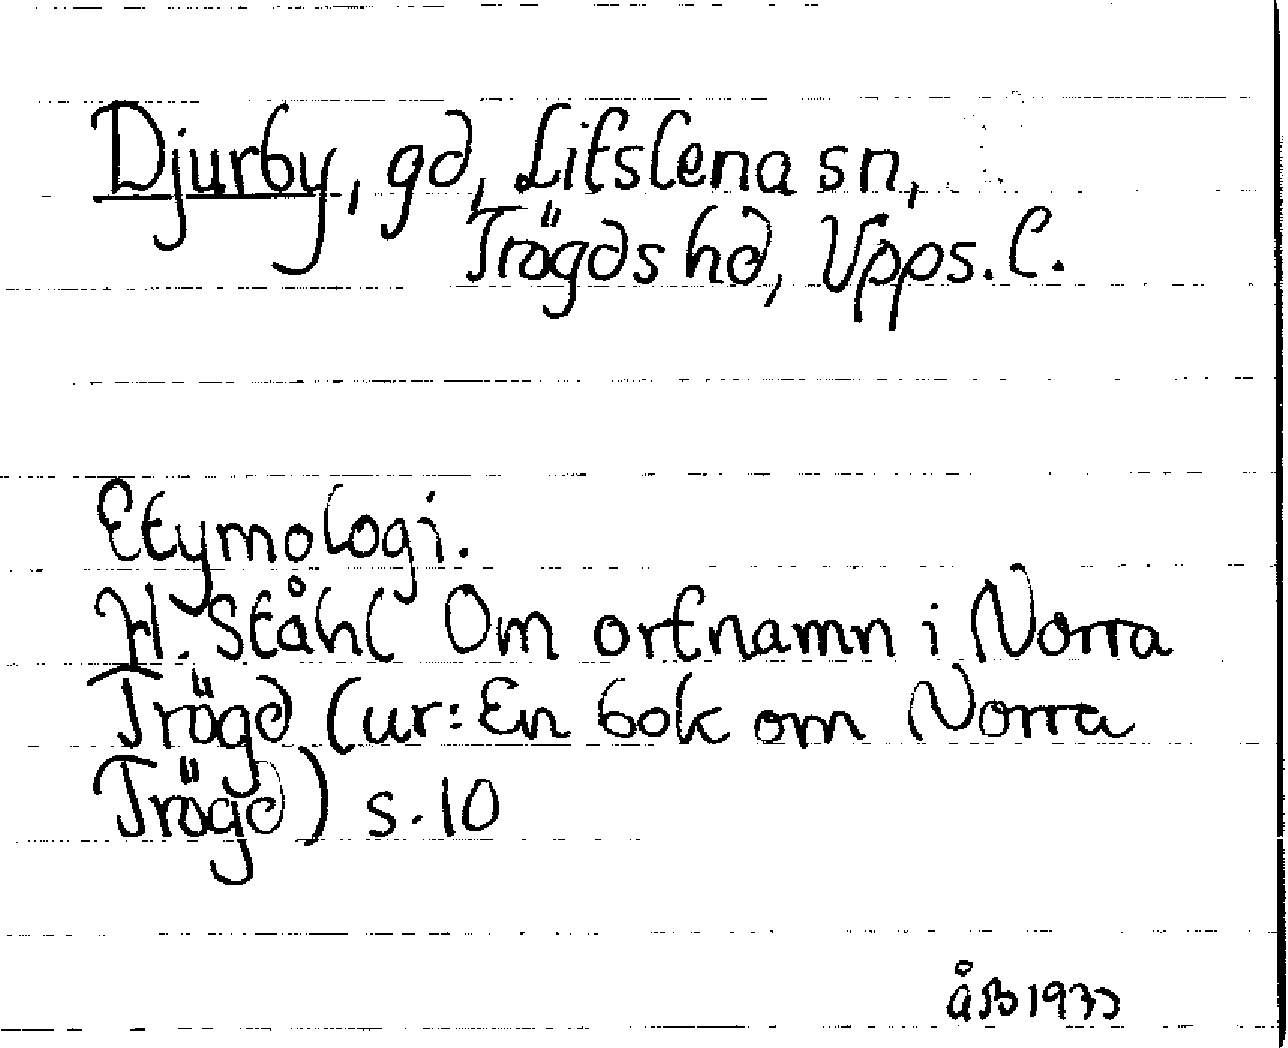 Djurby, gd, Litslena sn,
Trögds hd, Upps. l.
Etymologi.
H. Ståhl Om ortnamn i Norra
Trögd (ur: En bok om Norra
Trögd) s. 10